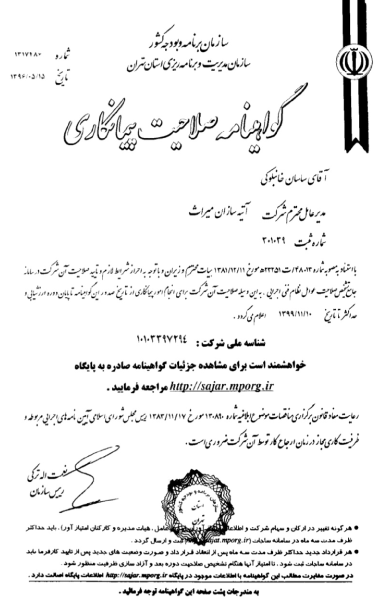 سازمان برنامه و بودجه کشور
سازمان مدیریت و برنامه ریزی استان تهران
شماره ۱۳۱۷۴۸۰
تاریخ ۱۳۹۶/۰۵/۱۵
گواهینامه صلاحیت پیمانکاری
آقای ساسان خانبلوکی
مدیرعامل محترم شرکت آتیه سازان میراث
شماره ثبت ۳۰۱۰۳۹
با استناد به مصوبه شماره ۴۸۰۱۳/ت۲۳۲۵۱ه مورخ ۱۳۸۱/۱۲/۱۱ هیات محترم وزیران و با توجه به احراز شرایط لازم و تایید صلاحیت آن شرکت در سامانه
جامع تشخیص صلاحیت عوامل نظام فنی اجرایی، به این وسیله صلاحیت آن شرکت برای انجام امور پیمانکاری از تاریخ صدور این گواهینامه تا پایان دوره ارزشیابی و
حداکثر تا تاریخ ۱۳۹۹/۱۱/۱۰ اعلام می گردد.
شناسه ملی شرکت : ۱۰۱۰۳۳۹۷۲۹۴
خواهشمند است برای مشاهده جزئیات گواهینامه صادره به پایگاه
http://sajar.mporg.ir مراجعه فرمایید .
رعایت مفاد قانون برگزاری مناقصات موضوع ابلاغیه شماره ۱۳۰۸۹۰ مورخ ۱۳۸۳/۱۱/۱۷ رییس مجلس شورای اسلامی آیین نامه های اجرایی مربوطه و
ظرفیت کاری مجاز در زمان ارجاع کار توسط آن شرکت ضروری است.
نعمت اله ترکی
رییس سازمان
هر گونه تغییر در ارکان و سهام شرکت و اطلاعات عامل، هیات مدیره و کارکنان امتیاز آور)، باید حداکثر
ظرف مدت سه ماه در سامانه ساجات (sajar.mporg.ir) ثبت و ارسال گردد.
هر قرارداد جدید حداکثر ظرف مدت سه ماه پس از انعقاد قرارداد و صورت وضعیت های جدید پس از تایید کارفرما باید
در سامانه ساجات ثبت شود . تا امتیاز آنها هنگام تشخیص صلاحیت دوره بعد و آزاد سازی ظرفیت منظور شود.
در صورت مغایرت مطالب این گواهینامه با اطلاعات موجود در پایگاه http://sajar.mporg.ir اطلاعات پایگاه اصالت دارد.
به مندرجات پشت صفحه این گواهینامه توجه فرمائید .